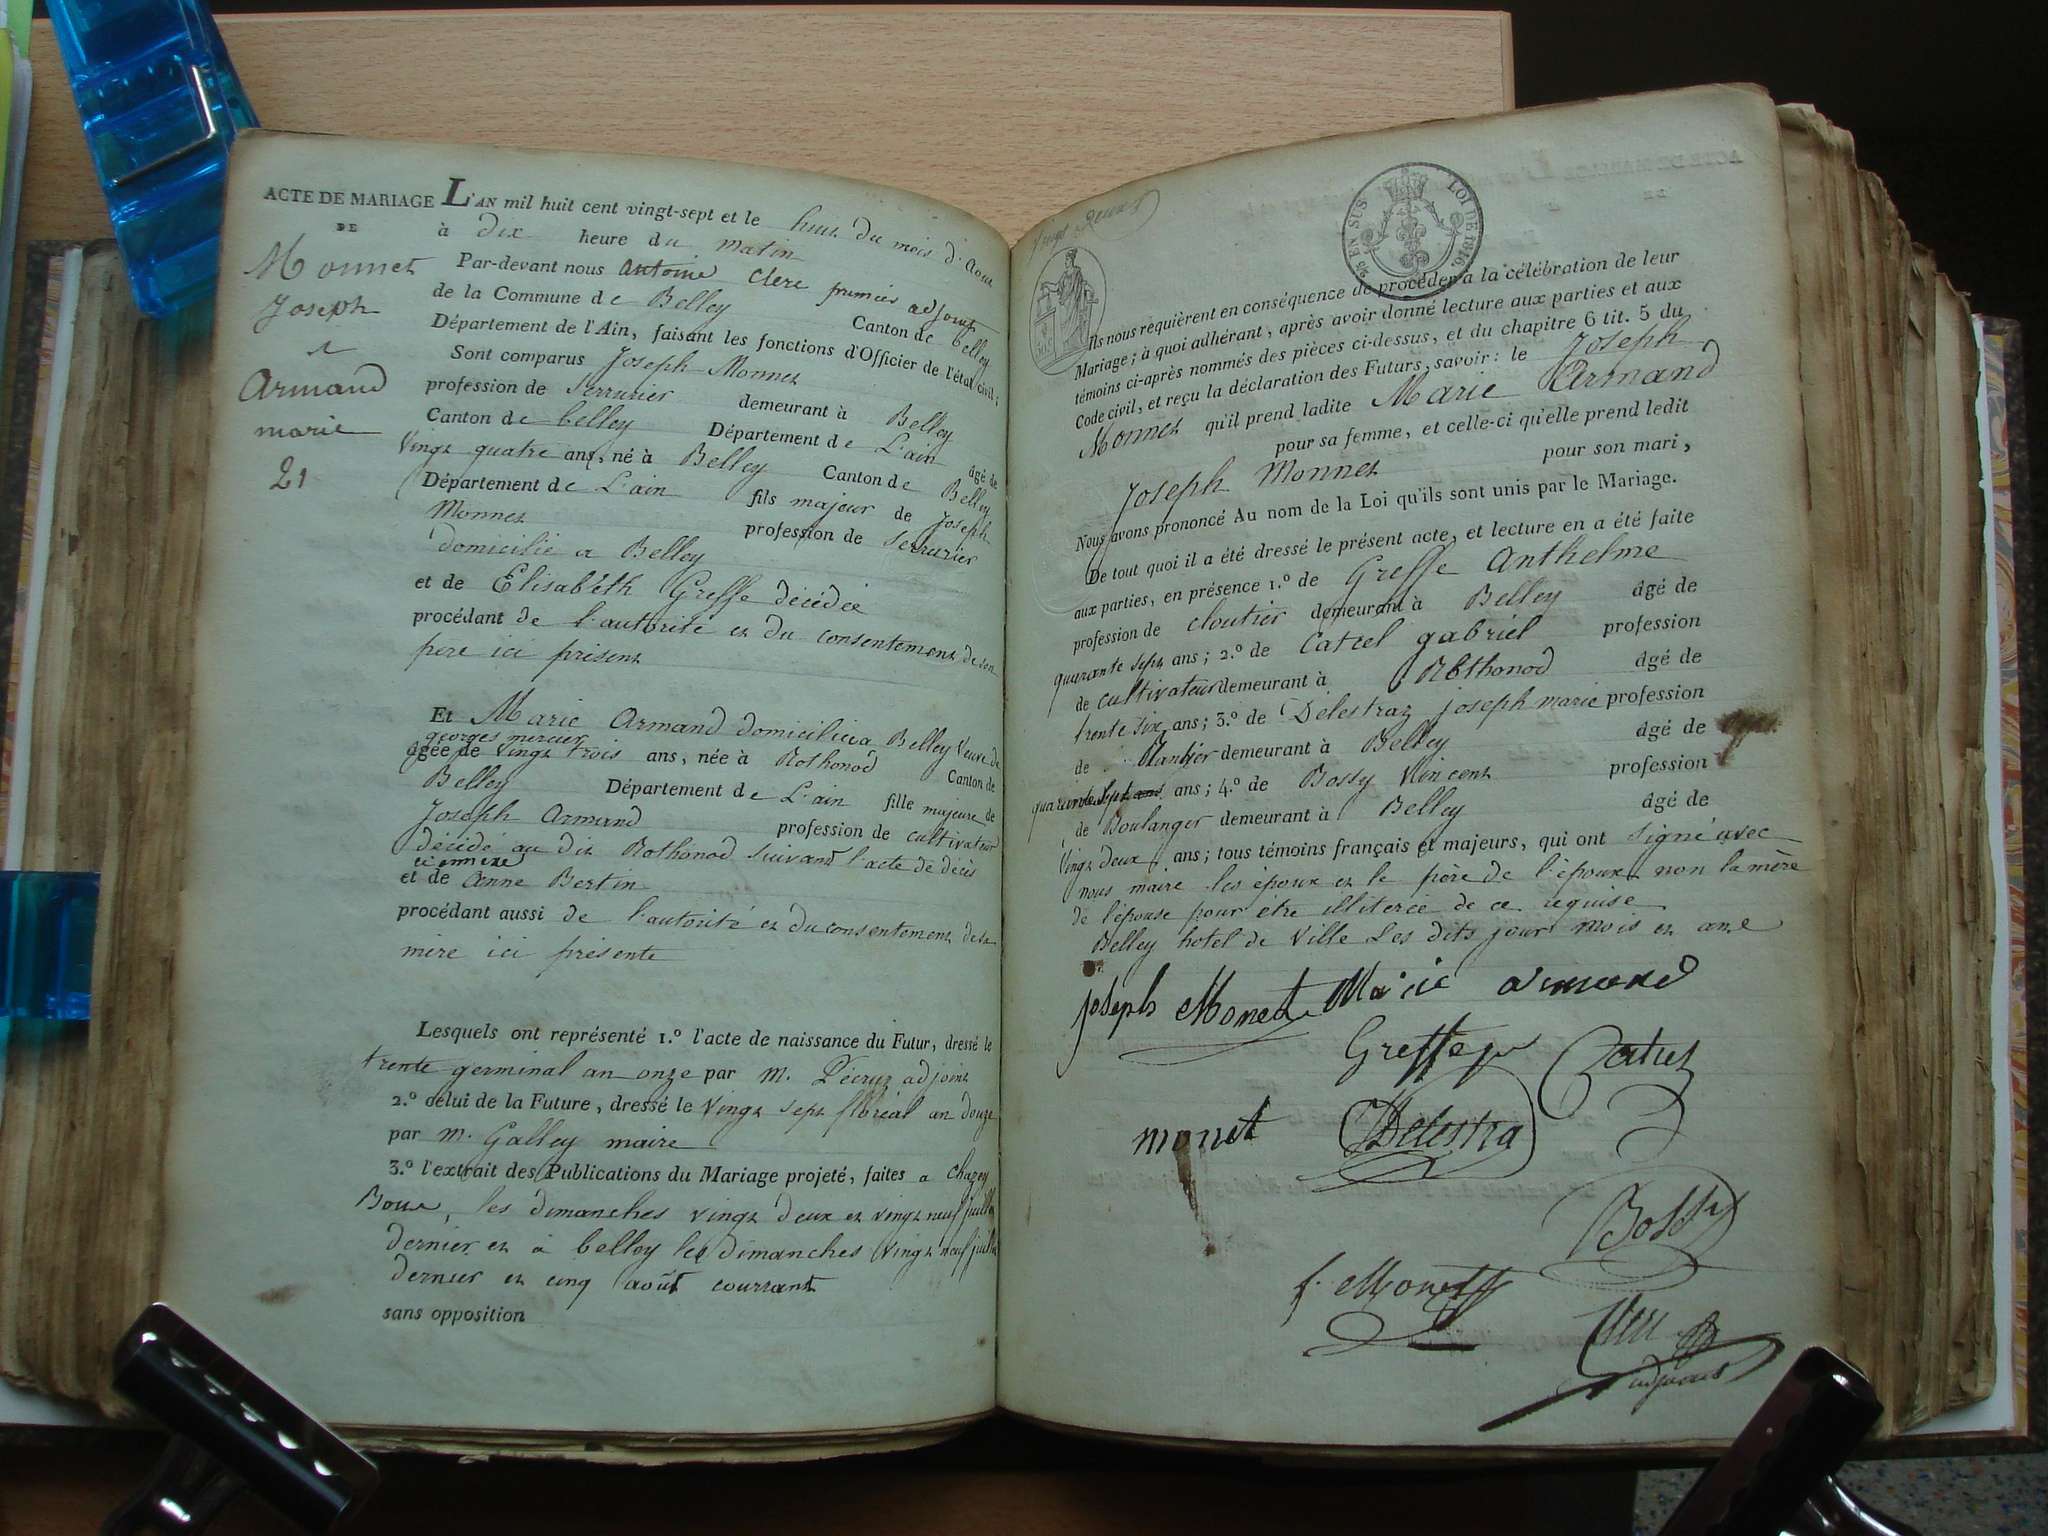 ACTE DE MARIAGE
DE
Monnet
Joseph
et
Armand
marie
21
L'AN mil huit cent vingt-sept et le huit du mois d'aout
à dix heure du matin
Par-devant nous antoine Clerc premier adjoint
de la Commune de Belley Canton de belley
Département de l'Ain, faisant les fonctions d'Officier de l'état civil;
Sont comparus Joseph Monnet
profession de serrurier demeurant à Belley
Canton de belley Département de L'ain agé de
vingt quatre ans, né à Belley Canton de Belley
Département de L'ain fils majeur de Joseph
Monnet profession de serrurier
domicilié a Belley
et de Elisabéth Greffe décédée
procédant de l'autorité et du consentement de son
pere ici présent
Et Marie Armand domiciliée a Belley veuve de
georges mercier
agée de vingt trois ans, née à Rothonod Canton de
Belley Département de L'ain fille majeure de
Joseph Armand profession de cultivateur
décédé au dit Rothonod suivant l'acte de décès
ci annexé
et de Anne Bertin
procédant aussi de l'autorité et du consentement de sa
mère ici présente
Lesquels ont représenté 1.º l'acte de naissance du Futur, dressé le
trente germinal an onze par m. Pécruz adjoint
2.º celui de la Future, dressé le vingt sept floréal an douze
par m. Galley maire
3.º l'extrait des Publications du Mariage projeté, faites a chazey
Bons, les dimanches vingt deux et vingt neuf juillet
dernier et à belley les dimanches vingt neuf juillet
dernier et cinq août courrant
sans opposition
vingt deux
25 EN SUS LOI DE 1816.
Ils nous requièrent en conséquence de procéder à la célébration de leur
Mariage; à quoi adhérant, après avoir donné lecture aux parties et aux
témoins ci-après nommés des pièces ci-dessus, et du chapitre 6 tit. 5 du
Code civil, et reçu la déclaration des Futurs, savoir: le Joseph
Monnet qu'il prend ladite Marie Armand
pour sa femme, et celle-ci qu'elle prend ledit
Joseph Monnet pour son mari,
Nous avons prononcé Au nom de la Loi qu'ils sont unis par le Mariage.
De tout quoi il a été dressé le présent acte, et lecture en a été faite
aux parties, en présence 1.º de Greffe Anthelme
profession de cloutier demeurant à Belley agé de
quarante sept ans; 2.º de Catcel gabriel profession
de cultivateur demeurant à Rothonod agé de
trente six ans; 3.º de Delestraz joseph marie profession
de demeurant à Belley agé de
quarante sept ans ans; 4.º de Bossy Vincent profession
de Boulanger demeurant à Belley agé de
vingt deux ans; tous témoins français et majeurs, qui ont signé avec
nous maire les époux et le père de l'époux non la mère
de l'épouse pour etre illiterée de ce requise
Belley hotel de Ville Les dits jour mois et ane
joseph Monet Marie armand
Greffe
monet Delestra
Bossy
f. Monet
Clerc
adjoint